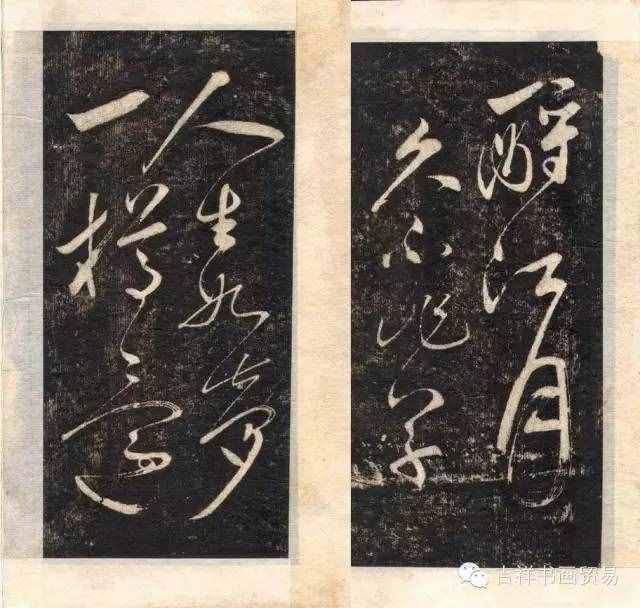 人生如夢
一樽還
酹江月
久不作草
吉祥书画贸易